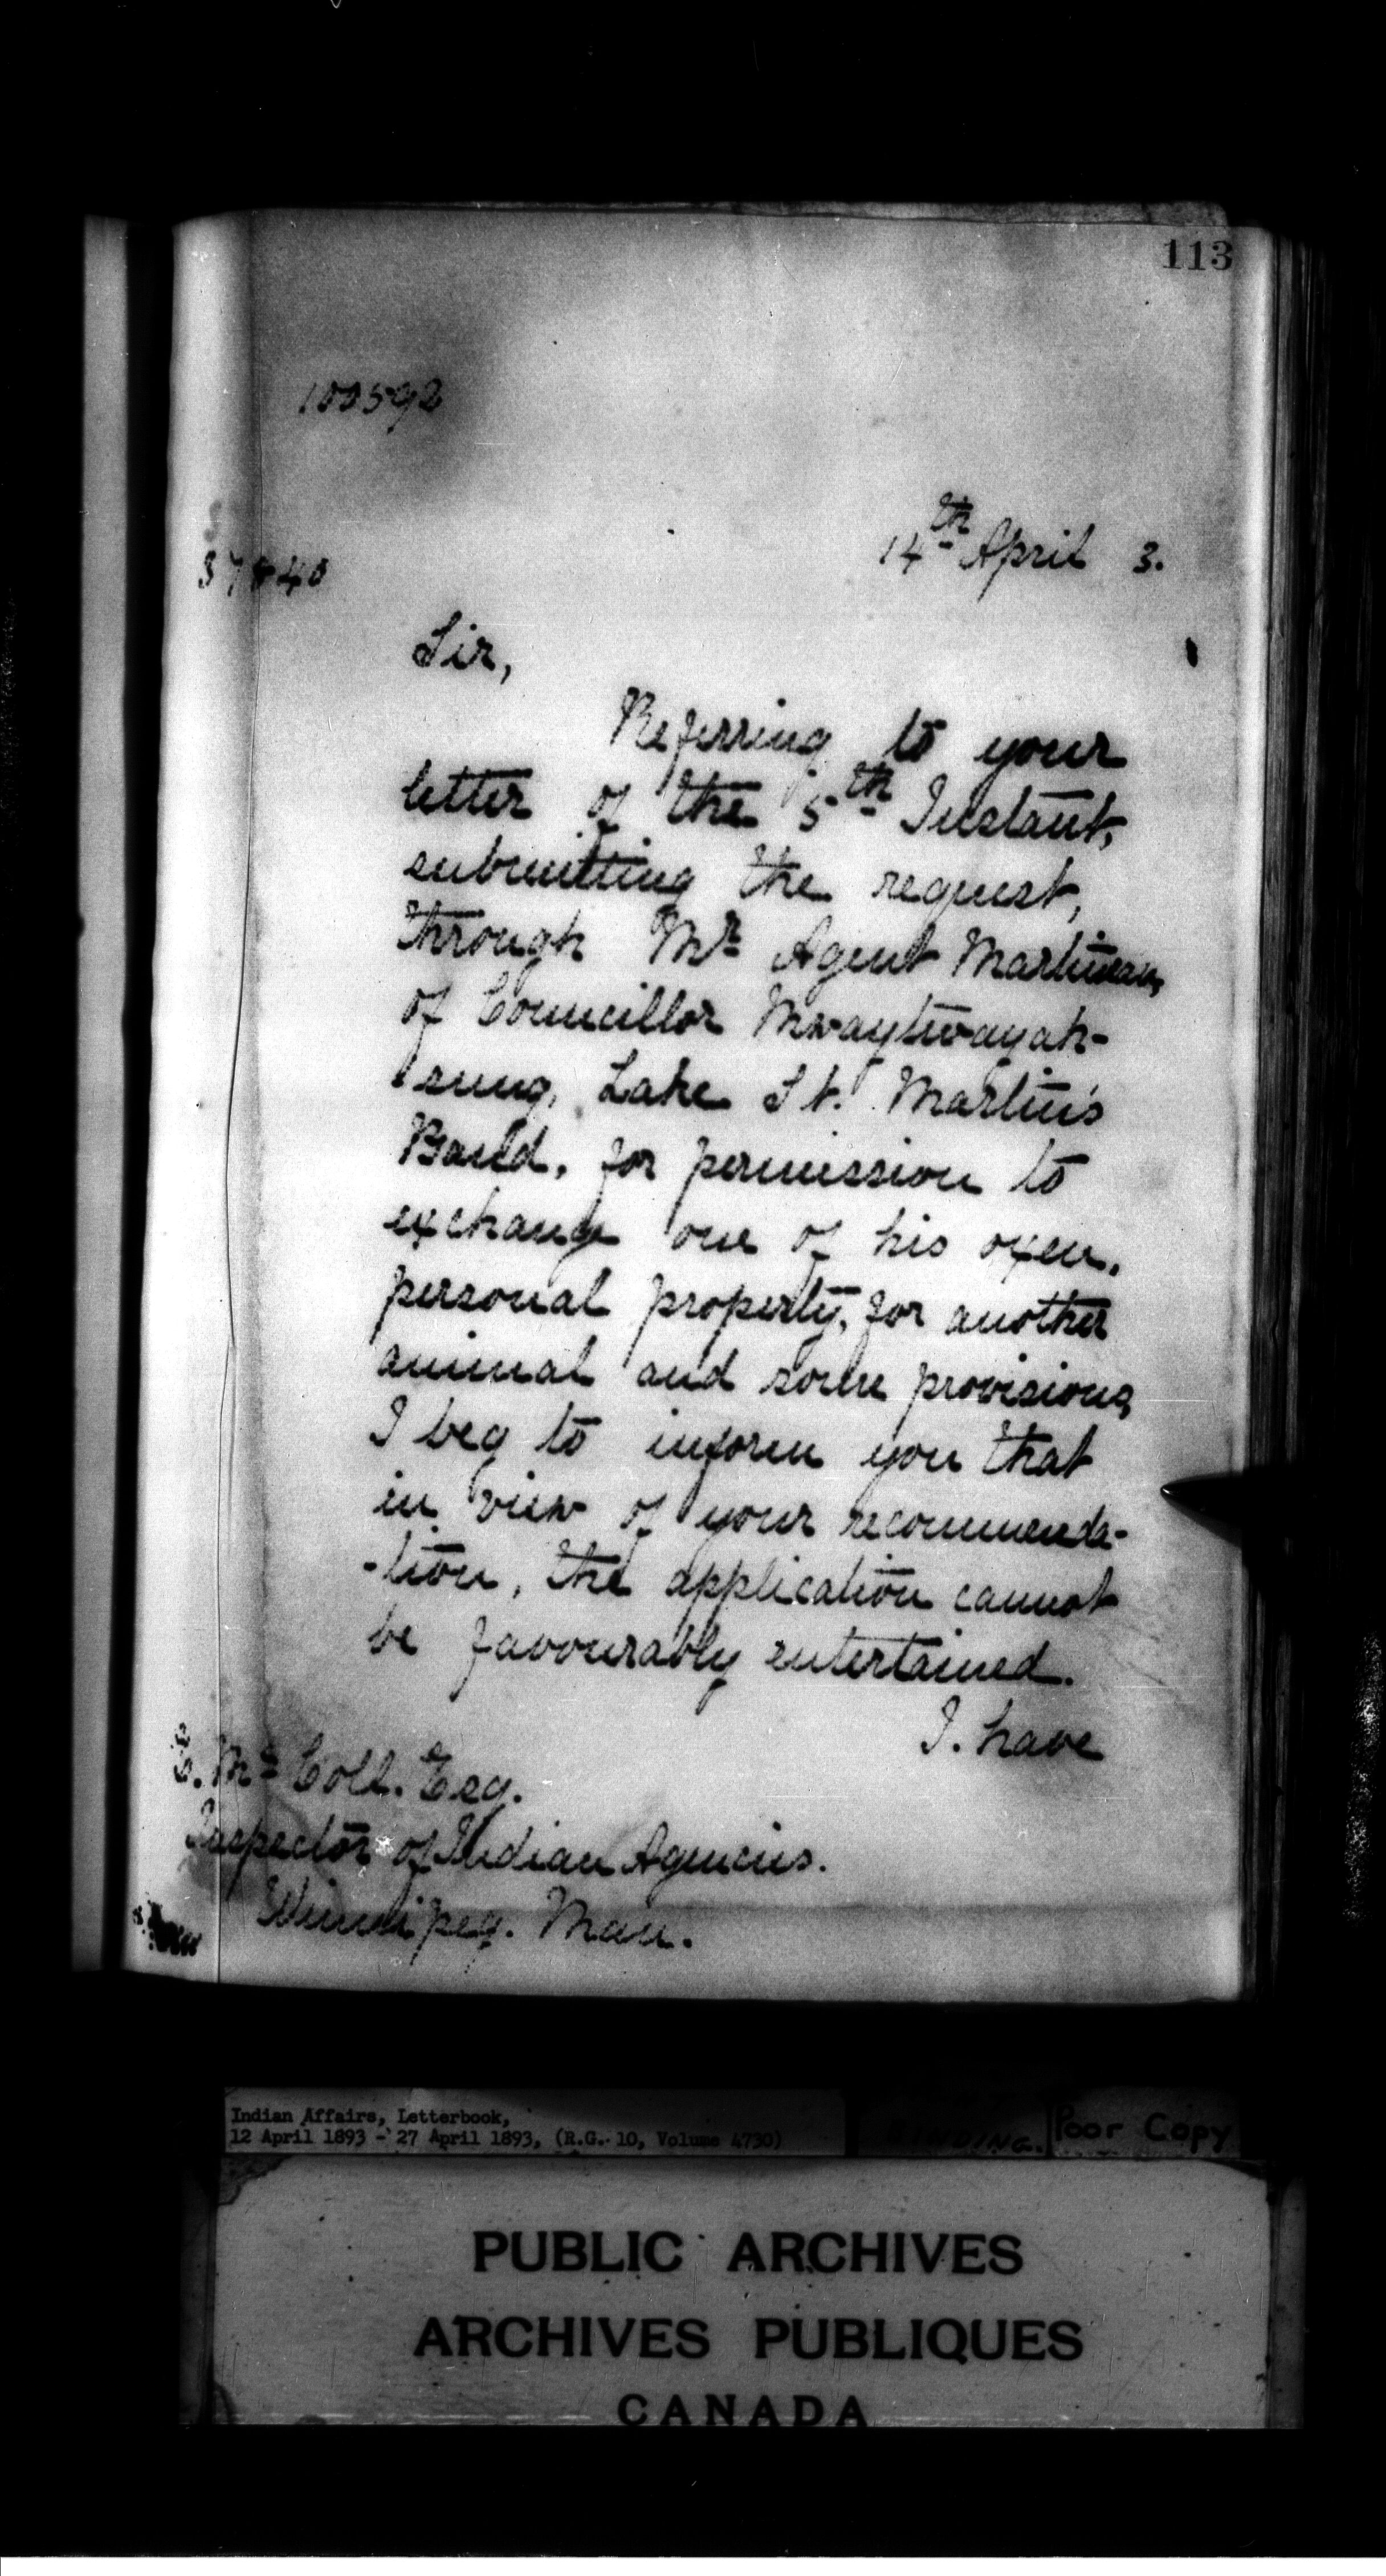 113
100592
14th April 3.
Sir,
Referring to your
letter of the 5th Instant,
submitting the request,
through Mr Agent Martineau,
of Councillor Mwaytwayah-
sung, Lake St. Martin's
Band, for permission to
exchange one of his oxen,
personal property, for another
animal and some provisions,
I beg to inform you that
in view of your recommenda-
-tion, the application cannot
be favourably entertained.
I. have
E. Mc Coll. Esq.
Inspector of Indian Agencies.
Winnipeg. Man.
Indian Affairs, Letterbook,
12 April 1893 - 27 April 1893, (R.G. 10, Volume 4730)
BINDING.
Poor Copy
PUBLIC ARCHIVES
ARCHIVES PUBLIQUES
CANADA